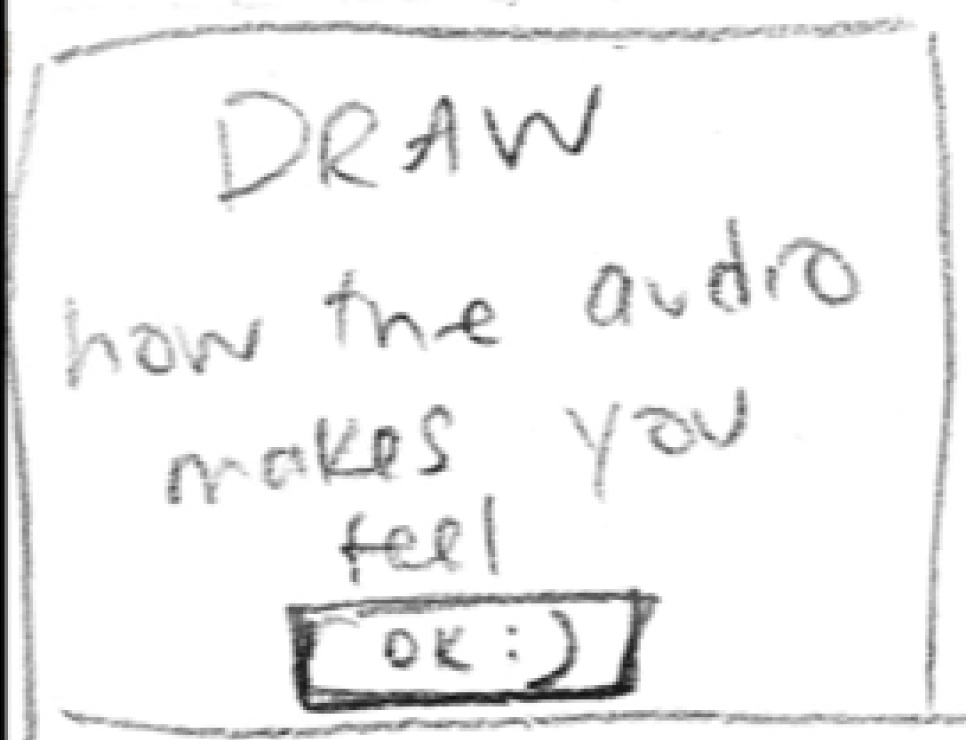 DRAW
how the audio
makes you
feel
OK :)